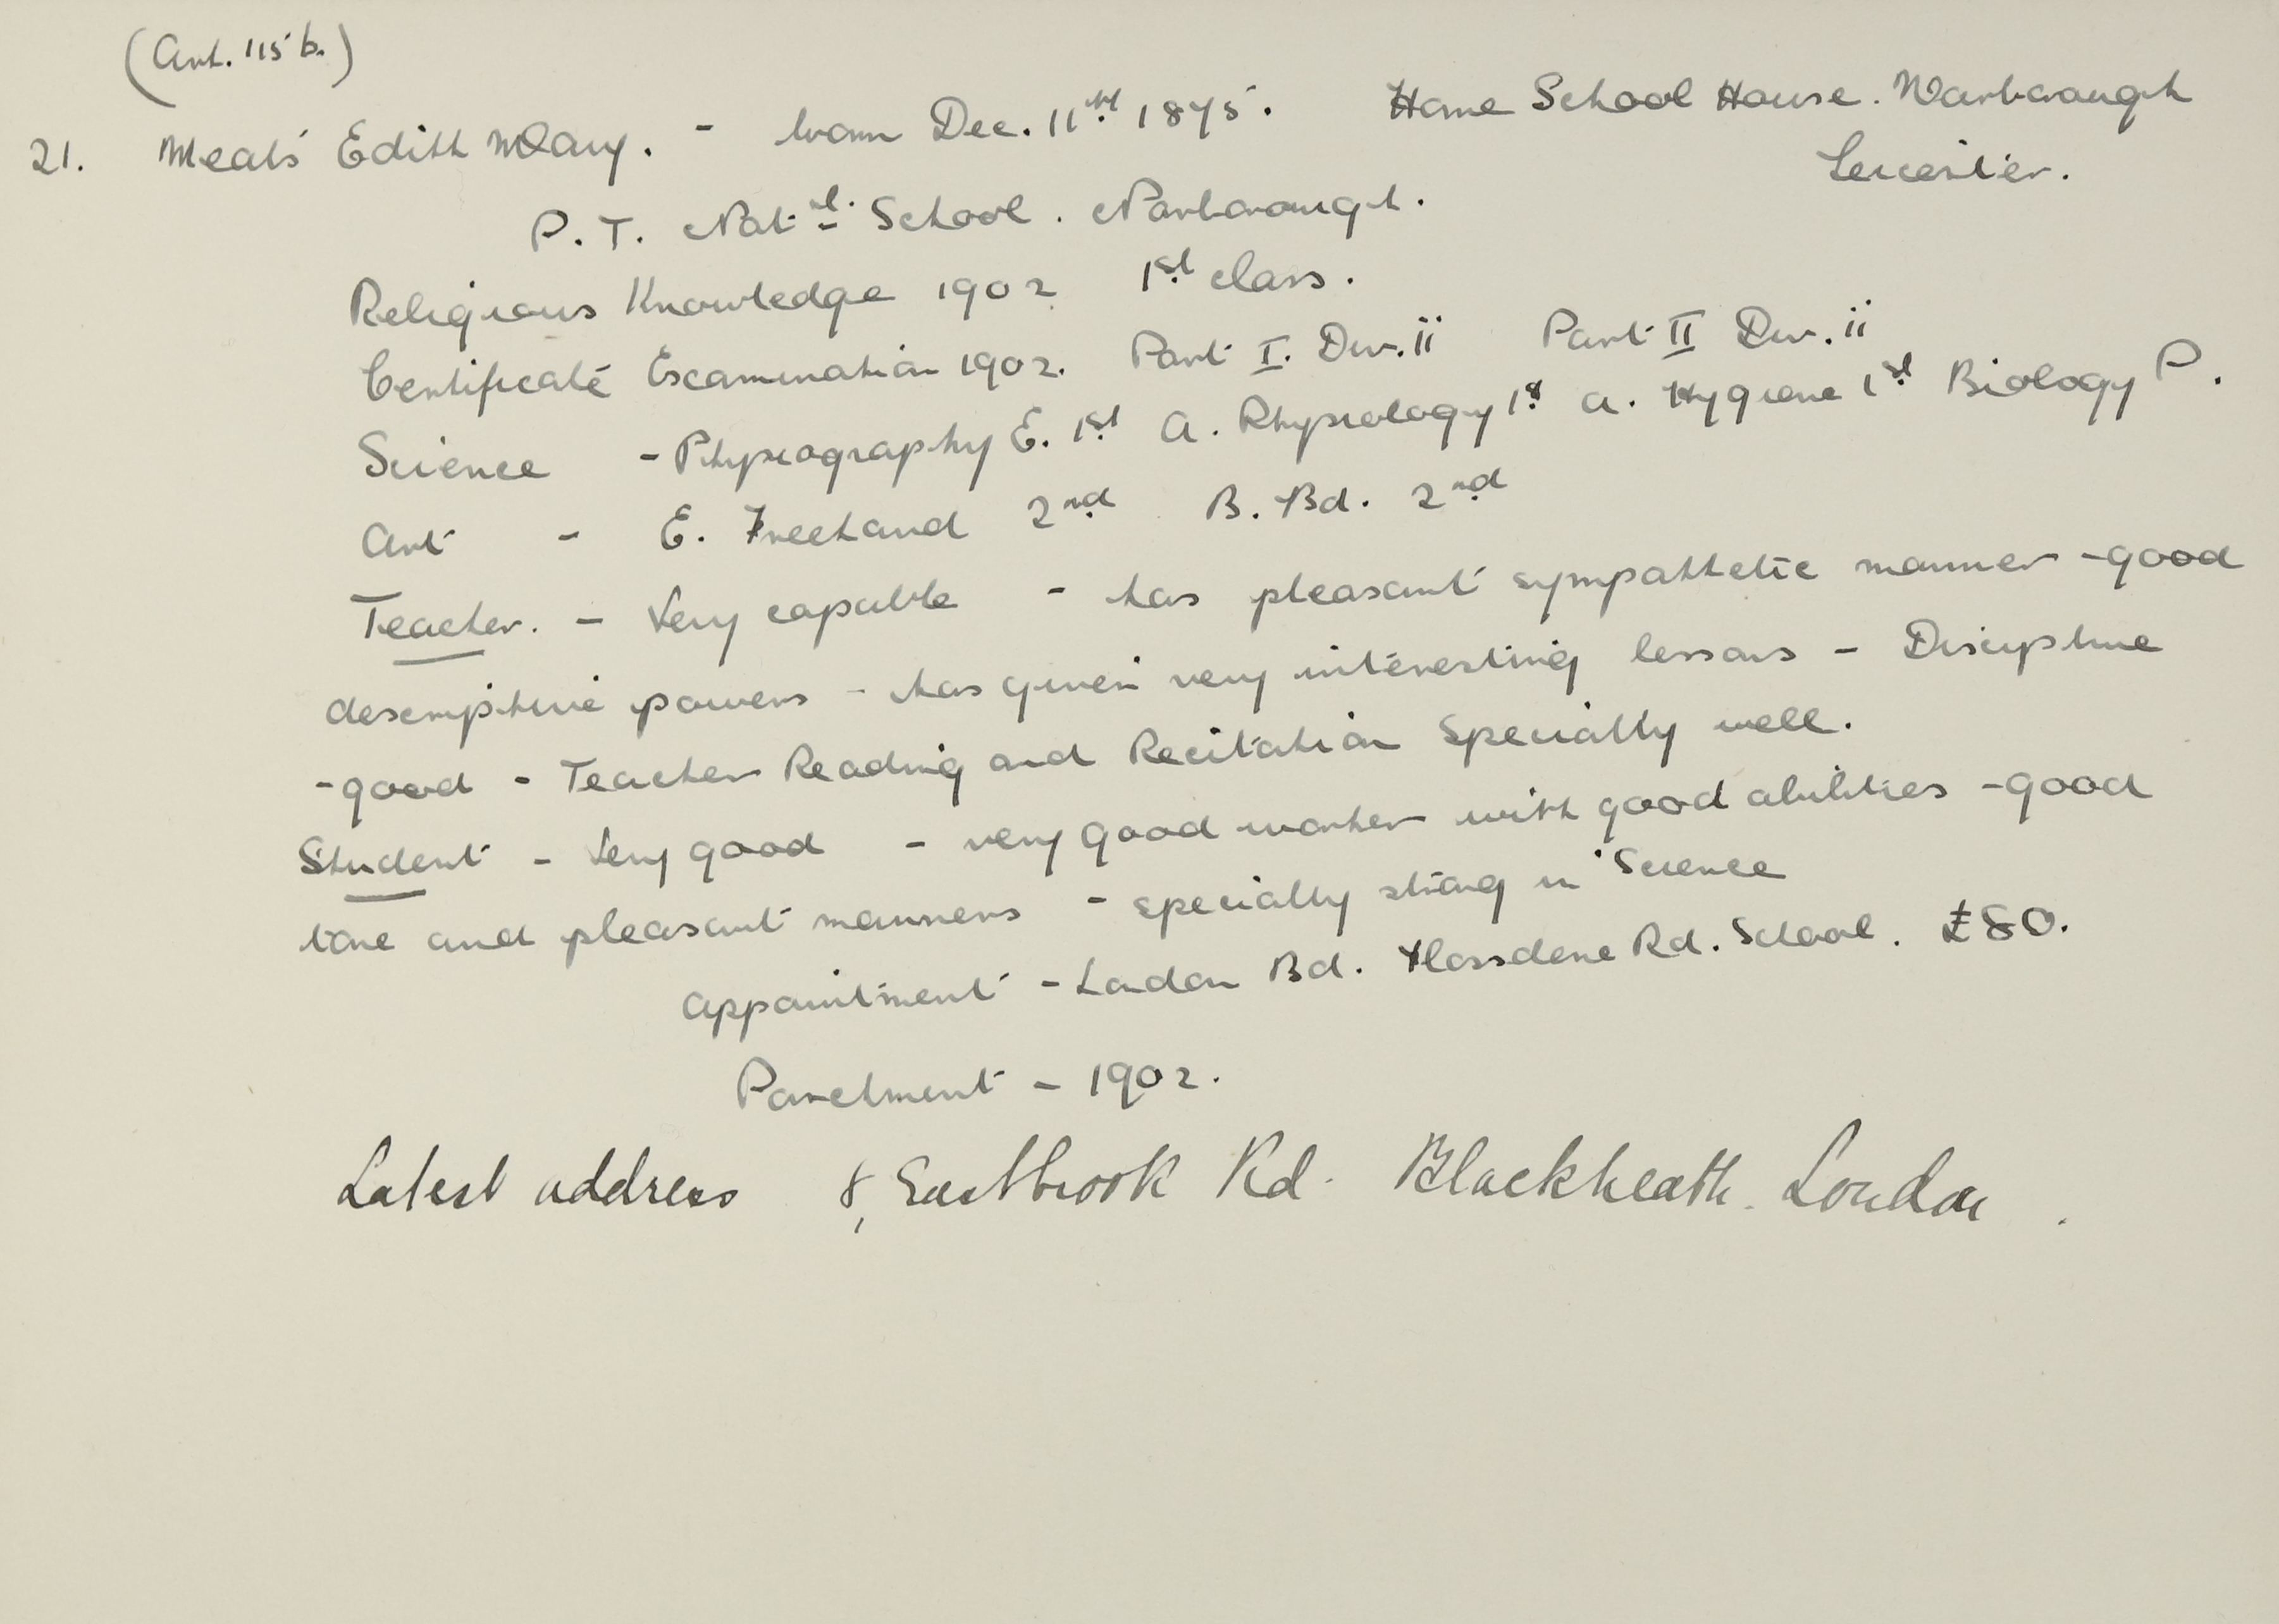 (Art. 115 b.)
21. Meats Edith Mary. - born Dec. 11th 1875. Home School House. Narborough
Leicester.
P. T. Nat.l School. Narborough.
Religious Knowledge 1902 1st class.
Certificate Examination 1902. Part I. Div. ii Part II Div. ii
Science - Physiography E. 1st A. Physiology 1st A. Hygiene 1st Biology P.
Art - E. Freehand 2nd B. Bd. 2nd
Teacher. - Very capable - has pleasant sympathetic manner - good
descriptive powers - has given very interesting lessons - Discipline
- good - Teacher Reading and Recitation specially well.
Student - Very good - very good worker with good abilities - good
tone and pleasant manners - specially strong in Science
Appointment - London Bd. Rd. School. £80.
Parchment - 1902.
Latest address 8, Eastbrook Rd. Blackheath. London.